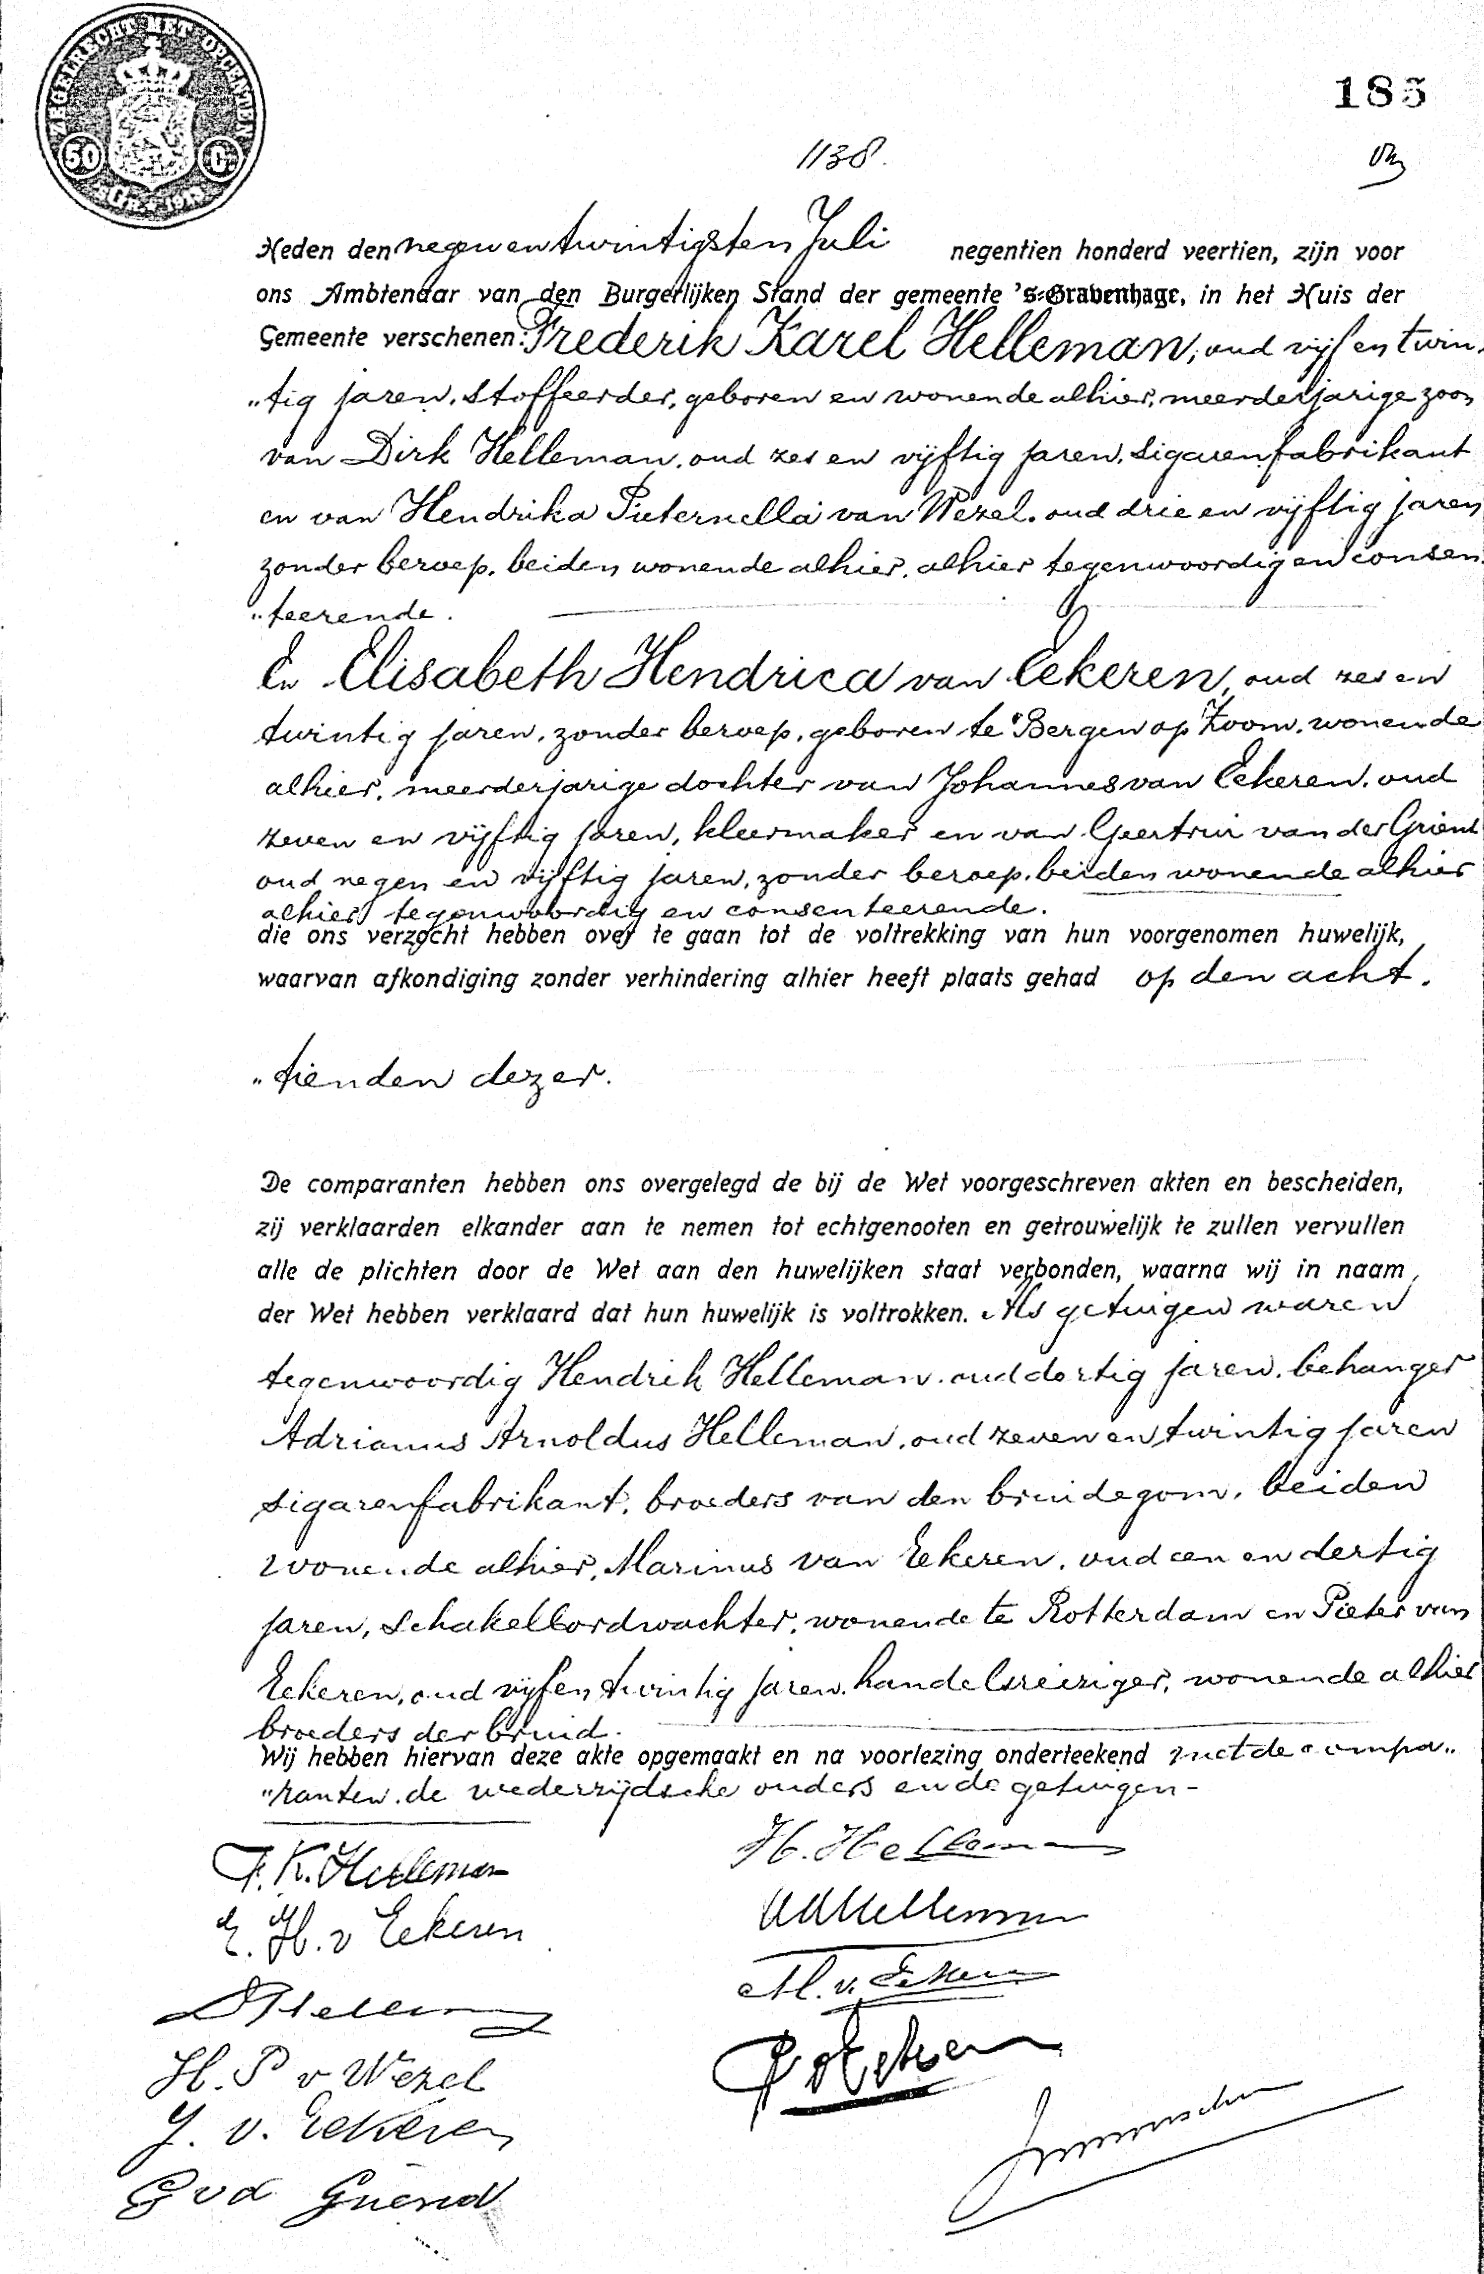 ZEGELRECHT MET OPCENTEN
50 Ct.
185
1138.
Heden den negen en twintigsten Juli negentien honderd veertien, zijn voor
ons Ambtenaar van den Burgerlijken Stand der gemeente 's-Gravenhage, in het Huis der
Gemeente verschenen: Frederik Karel Helleman, oud vijf en twin„
„tig jaren, stoffeerder, geboren en wonende alhier, meerderjarige zoon
van Dirk Helleman, oud zes en vijftig jaren, sigarenfabrikant
en van Hendrika Pieternella van Wezel, oud drie en vijftig jaren
zonder beroep, beiden wonende alhier, alhier tegenwoordig en consen„
„teerende.
En Elisabeth Hendrica van Eekeren, oud zes en
twintig jaren, zonder beroep, geboren te Bergen op Zoom, wonende
alhier, meerderjarige dochter van Johannes van Eekeren, oud
zeven en vijftig jaren, kleermaker en van Geertrui van der Griend
oud negen en vijftig jaren, zonder beroep, beiden wonende alhier
alhier tegenwoordig en consenteerende.
die ons verzocht hebben over te gaan tot de voltrekking van hun voorgenomen huwelijk,
waarvan afkondiging zonder verhindering alhier heeft plaats gehad op den acht„
„tienden dezer.
De comparanten hebben ons overgelegd de bij de Wet voorgeschreven akten en bescheiden,
zij verklaarden elkander aan te nemen tot echtgenooten en getrouwelijk te zullen vervullen
alle de plichten door de Wet aan den huwelijken staat verbonden, waarna wij in naam
der Wet hebben verklaard dat hun huwelijk is voltrokken. Als getuigen waren
tegenwoordig Hendrik Helleman, oud dertig jaren, behanger
Adrianus Arnoldus Helleman, oud zeven en twintig jaren
sigarenfabrikant, broeders van den bruidegom, beiden
wonende alhier, Marinus van Eekeren, oud een en dertig
jaren, schakelbordwachter, wonende te Rotterdam en Pieter van
Eekeren, oud vijf en twintig jaren, handelsreiziger, wonende alhier
broeders der bruid.
Wij hebben hiervan deze akte opgemaakt en na voorlezing onderteekend met de compa„
„ranten, de wederzijdsche ouders en de getuigen-
F. K. Helleman
H. Helleman
E. H. v Eekeren
AAHelleman
DHelleman
M. v. Eekeren
H. P v Wezel
P v Eekeren
J. v. Eekeren
G v d Griend